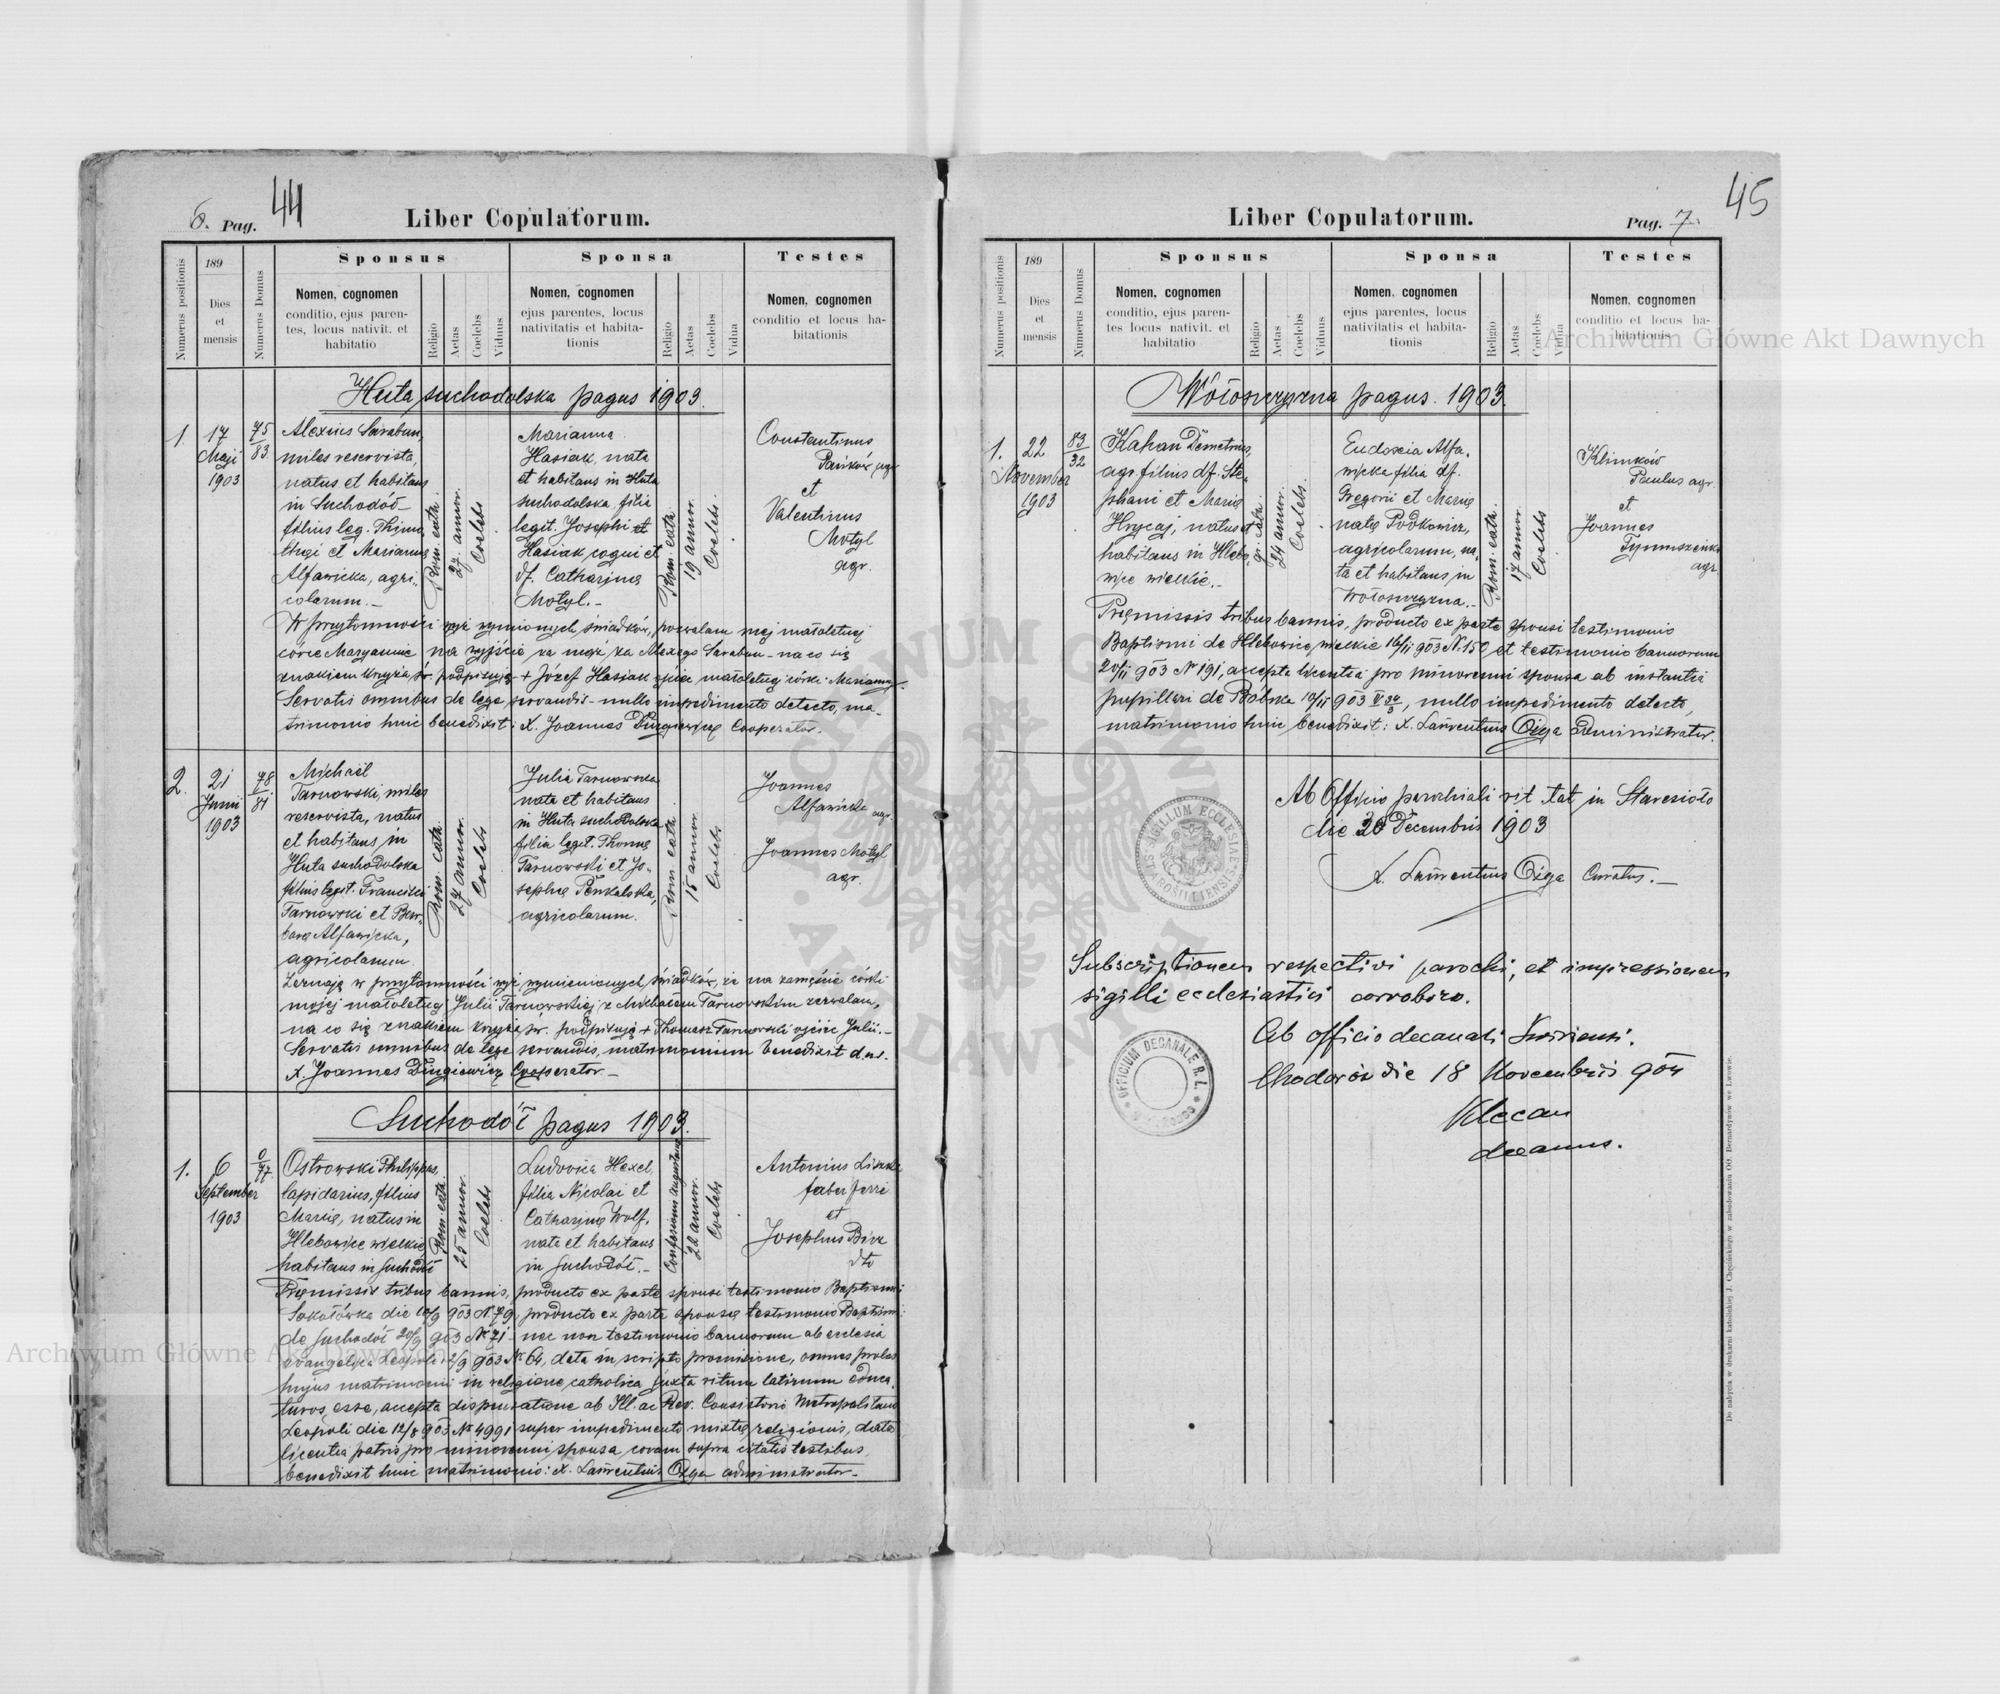 6. Pag. 44
Liber Copulatorum.
Numerus positionis
189
Dies
et
mensis
Numerus Domus
Sponsus
Nomen, cognomen
conditio, ejus paren-
tes, locus nativit. et
habitatio
Religio
Aetas
Coelebs
Viduus
Sponsa
Nomen, cognomen
ejus parentes, locus
nativitatis et habita-
tionis
Religio
Aetas
Coelebs
Vidua
Testes
Nomen, cognomen
conditio et locus ha-
bitationis
Huta suchodolska pagus 1903.
1.
17
Maji
1903
75
83
Alexius Saraban,
miles reservista,
natus et habitans
in Suchodół
filius leg. Thimo
thei et Marianna
Alfawicka, agri-
colarum.
Rom. cata.
27. annor.
Coelebs
Marianna
Hasiak, nata
et habitans in Huta
suchodolska, filia
legit. Josephi et
Hasiak cogui et
df. Catharinę
Motyl.
Rom. cata
19 annor.
Coelebs.
Constantinus
Pańków agr
et
Valentinus
Motyl
agr.
W przytomności wyż wymionych świadków, pozwalam mej małoletniej
córce Maryannie na wyjście za mąż za Alexego Saraban - na co się
znakiem krzyża św. podpisuję + Józef Hasiak ojciec małoletniej córki Marianny.
Servatis omnibus de lege servandis - nullo impedimento detecto, ma-
trimonio huic benedixit: X. Joannes Dziugiewicz Cooperator.
2.
21
Junii
1903
78
81
Michael
Tarnowski, miles
reservista, natus
et habitans, in
Huta suchodolska
filius legit. Francisci
Tarnowski et Bar-
barę Alfawicka,
agricolarum.
Rom. cata.
27 annor.
Coelebs
Julia Tarnowska
nata et habitans
in Huta suchodolska
filia legit. Thomę
Tarnowski et Jo-
sephę Penkalska,
agricolarum.
Rom. cata
annor.
Coelebs
Joannes
Alfawicka agr.
Joannes Motyl
agr.
Zeznaję w przytomności wyż wymienionych świadków, że na zamęście córki
mojej małoletniej Julii Tarnowskiej z Michałem Tarnowskim zezwalam,
na co się znakiem krzyża św. podpisuję + Thomasz Tarnowski ojciec Julii.
Servatis omnibus de lege servandis, matrimonium benedixit d. u. s.
X. Joannes Dziugiewicz Cooperator
Suchodół pagus 1903.
1.
6
September
1903
0
77
Ostrowski Philippus,
lapidarius, filius
Marię, natus in
Hlebowice wielkie
habitans in Suchodół
Rom. cata.
25 annor.
Coelebs
Ludovica Hexel,
filia Nicolai et
Catharinę Wolf,
nata et habitans
in Suchodół.
Confessionis augustanę
22 annor.
Coelebs
Antonius
faber ferri
et
Josephus
dto
Pręmissis tribus bannis, producto ex parte sponsi testimonio Baptismi
Sokołówka die 903 N. 79, producto ex parte sponsę testimonio Baptismi
de Suchodół 20/9 903 N 71 nec non testimonio bannorum ab ecclesia
evangelica Leopoli 903 N 64, data in scripto promissione, omnes proles
hujus matrimonii in religione catholica juxta ritum latinum educa
turos esse, accepta dispensatione ab Ill. ac Rev. Consistorio Metropolitano
Leopoli die 12/8 903 N 4991 super impedimento mixtę religionis, data
licentia patris pro minorenni sponsa coram supra citatis testibus,
benedixit huic matrimonio: X. Laurentius Ożga administrator.
45
Liber Copulatorum.
Pag. 7.
Numerus positionis
189
Dies
et
mensis
Numerus Domus
Sponsus
Nomen, cognomen
conditio, ejus paren-
tes locus nativit. et
habitatio
Religio
Aetas
Coelebs
Viduus
Sponsa
Nomen, cognomen
ejus parentes, locus
nativitatis et habita-
tionis
Religio
Aetas
Coelebs
Vidua
Testes
Nomen, cognomen
conditio et locus ha-
bitationis
Wołoszczyzna pagus. 1903.
1.
22
November
1903
83
32
Kahan Demetrius,
agr. filius df. Ste-
phani et Marię
Hrycaj, natus et
habitans in Hlebo-
wice wielkie.
gr. cata.
24 annor.
Coelebs.
Eudoxia Alfa-
wicka filia df.
Gregorii et Marię
natę Podkowicz,
agricolarum, na-
ta et habitans in
Wołoszczyzna.
Rom. cata.
17 annor.
Coelebs
Klimków
Paulus agr.
et
Joannes
agr.
Pręmissis tribus bannis, producto ex parte sponsi testimonio
Baptismi de Hlebowice wielkie 16/11 903 N. 150 et testimonio bannorum
20/11 903 N 191, accepta licentia pro minorenni sponsa ab instantia
pupillari de Bóbrka 10/11 903, nullo impedimento detecto,
matrimonio huic benedixit: X. Laurentius Ożga Administrator.
Ab Officio parochiali rit. lat. in Staresioło
die 20 Decembris 1903
X. Laurentius Ożga Curatus.
SIGILLUM ECCLESIAE STAROSILIENSIS
Subscriptionem respectivi parochi, et impressionem
sigilli ecclesiastici corroboro.
Ab officio decanali Swirensi.
Chodorów die 18 Novembris 904
Klecan
decanus.
OFFICIUM DECANALE R. L.
Do nabycia w drukarni katolickiej J. Chęcińskiego w zabudowaniu OO. Bernardynów we Lwowie.
Archiwum Główne Akt Dawnych
Archiwum Główne Akt Dawnych
ARCHIWUM GŁÓWNE AKT DAWNYCH